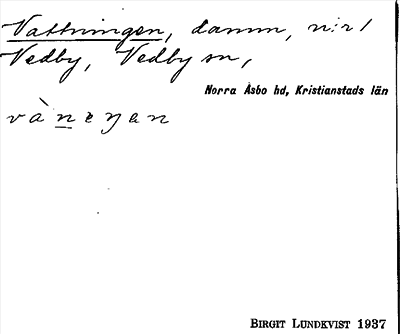 Vattningen, damm, n:r 1
Vedby, Vedby sn,
Norra Åsbo hd, Kristianstads län
BIRGIT LUNDKVIST 1937